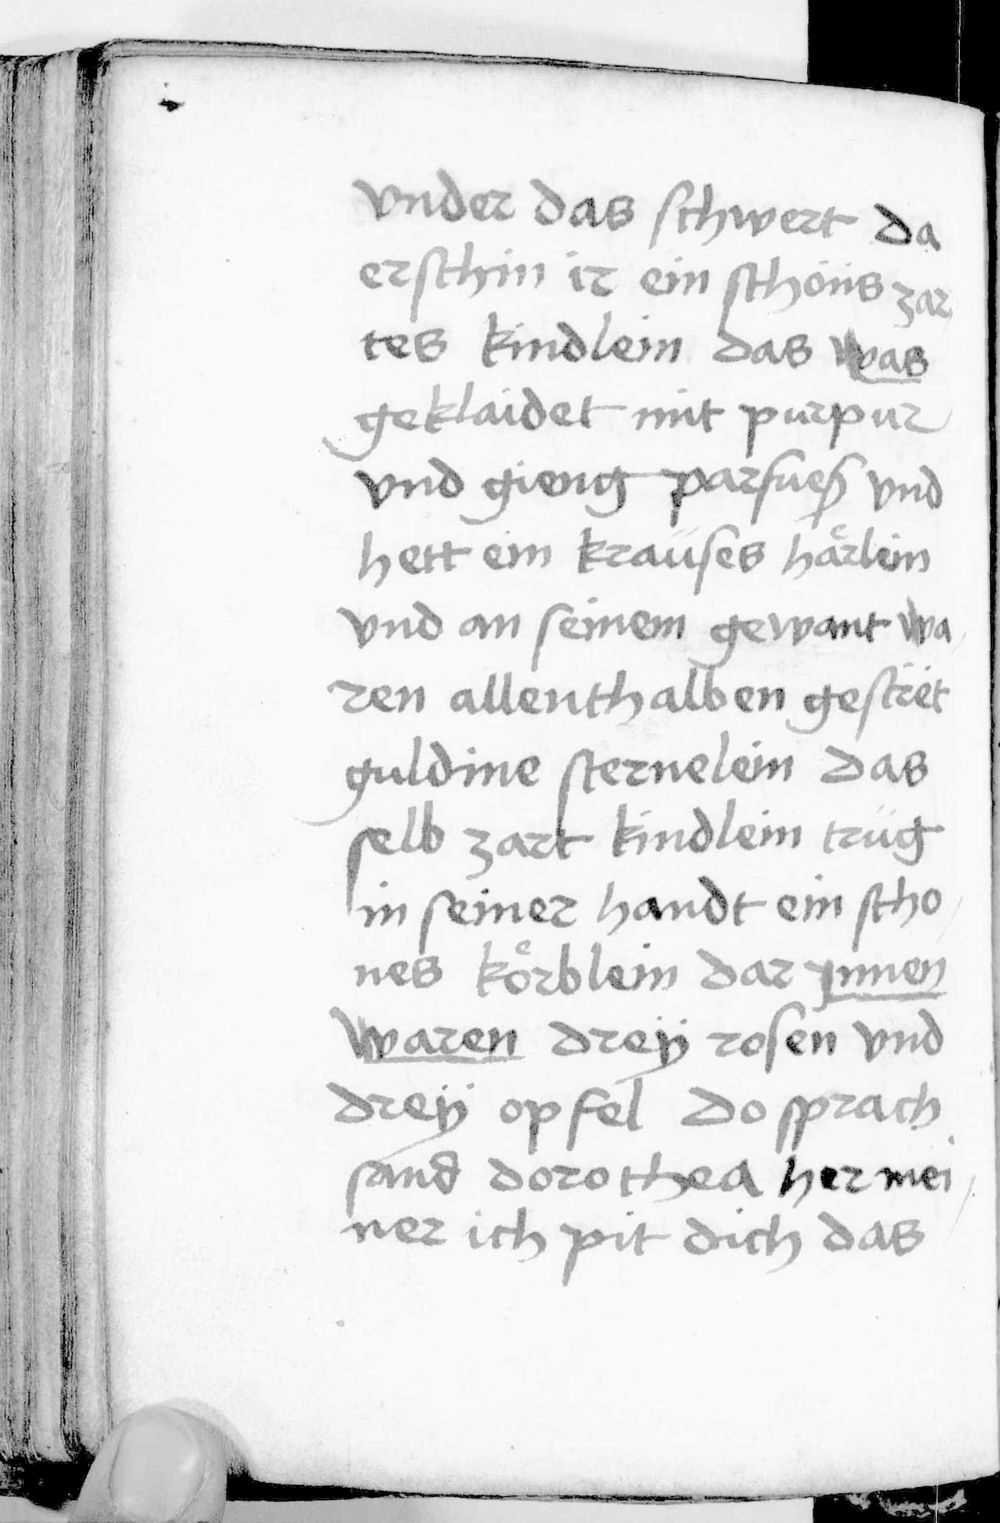 vnder das schwert da
erschin ir ein schöns zar
tes kindlein das was
geklaidet mit purpur
vnd gieng parfueß vnd
hett ein kraüses haͤrlein
vnd an seinem gewant wa
ren allenthalben gestrët
guldine sternelein das
selb zart kindlein trüg
in seiner handt ein scho
nes koͤrblein dar ynnen
waren dreÿ rosen vnd
dreÿ opfel Do sprach
sand dorothea her mei
ner ich pit dich das